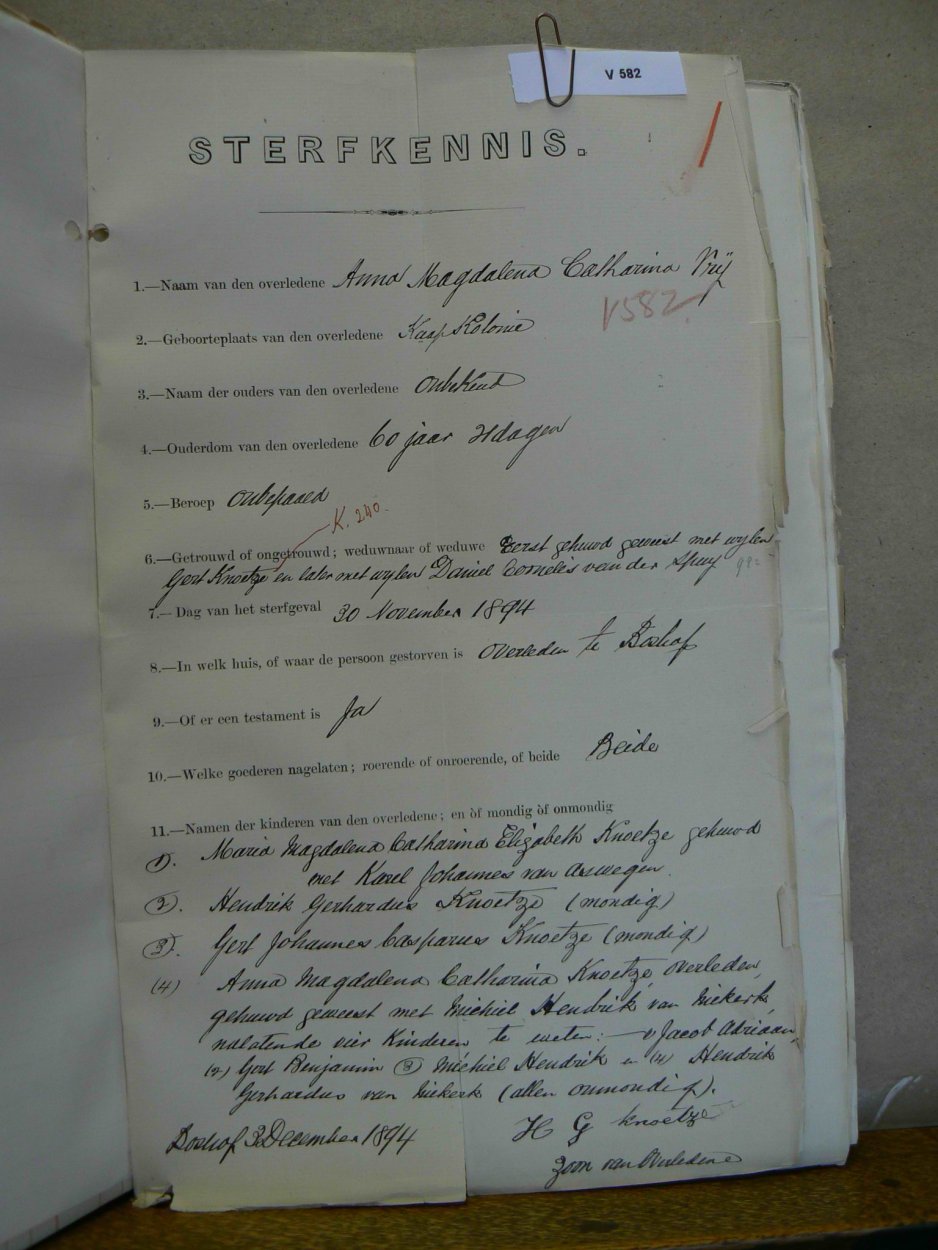 V 582
STERFKENNIS.
1.—Naam van den overledene Anna Magdalena Catharina Vrij
V582
2.—Geboorteplaats van den overledene Kaap Kolonie
3.—Naam der ouders van den overledene Onbekend
4.—Ouderdom van den overledene 60 jaar dagen
5.—Beroep Onbepaald
K. 240.
6.—Getrouwd of ongetrouwd; weduwnaar of weduwe Eerst gehuwd geweest met wylen
Gert Knoetze en later met wylen Daniel Cornelis van der Spuy
7.—Dag van het sterfgeval 30 November 1894
8.—In welk huis, of waar de persoon gestorven is Overleden te Boshof
9.—Of er een testament is Ja
10.—Welke goederen nagelaten; roerende of onroerende, of beide Beide
11.—Namen der kinderen van den overledene; en òf mondig òf onmondig
1). Maria Magdalena Catharina Elizabeth Knoetze gehuwd
met Karel Johannes van Aswegen.
2). Hendrik Gerhardus Knoetze (mondig)
3). Gert Johannes Casparus Knoetze (mondig)
(4) Anna Magdalena Catharina Knoetze, overleden,
gehuwd geweest met Michiel Hendrik van Niekerk,
nalatende vier Kinderen te weten:— 1) Jacob Adriaan,
(2) Gert Benjamin (3) Michiel Hendrik en (4) Hendrik
Gerhardus van Niekerk (allen onmondig).
Boshof 3 December 1894
H G Knoetze
Zoon van Overledene